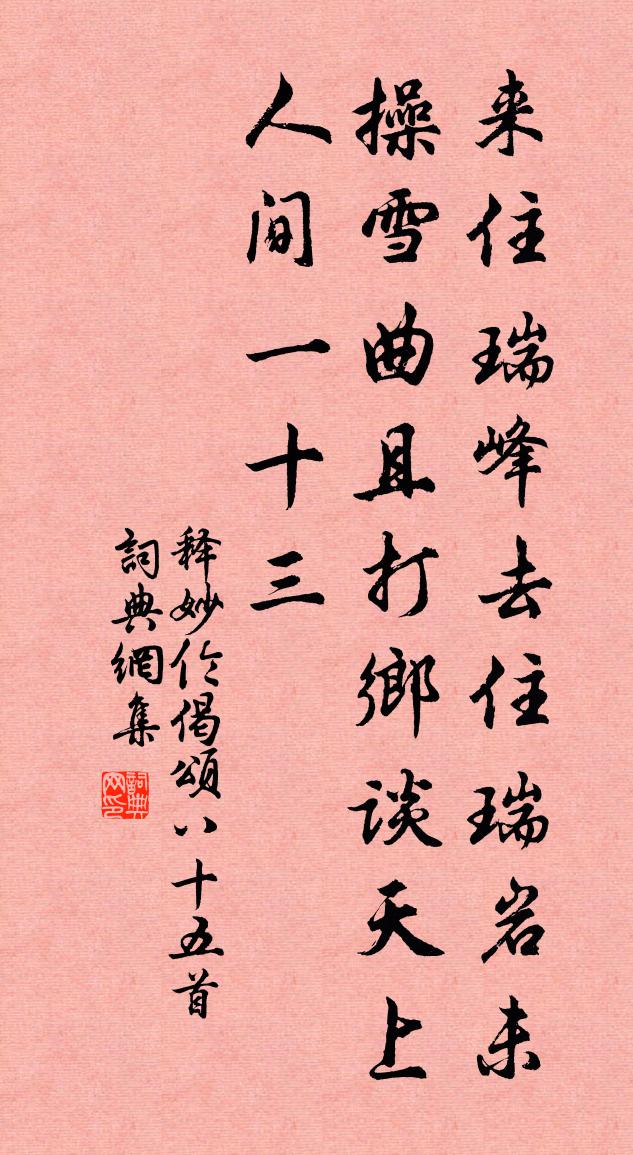 来住瑞峰去住瑞岩未
操雪曲且打鄉谈天上
人间一十三
释妙伦偈頌八十五首
詞典網集
詞典网印